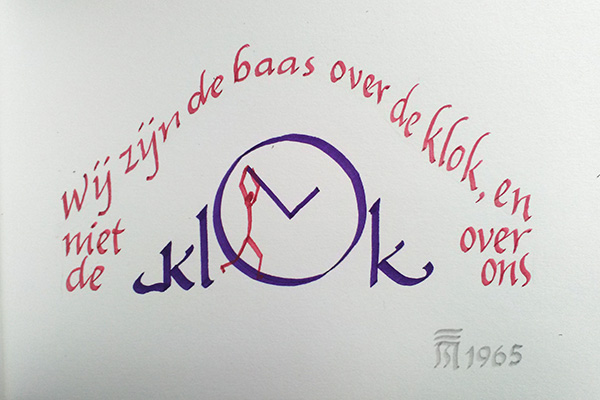 wij zijn de baas over de klok, en
niet over
de ons
klok
1965